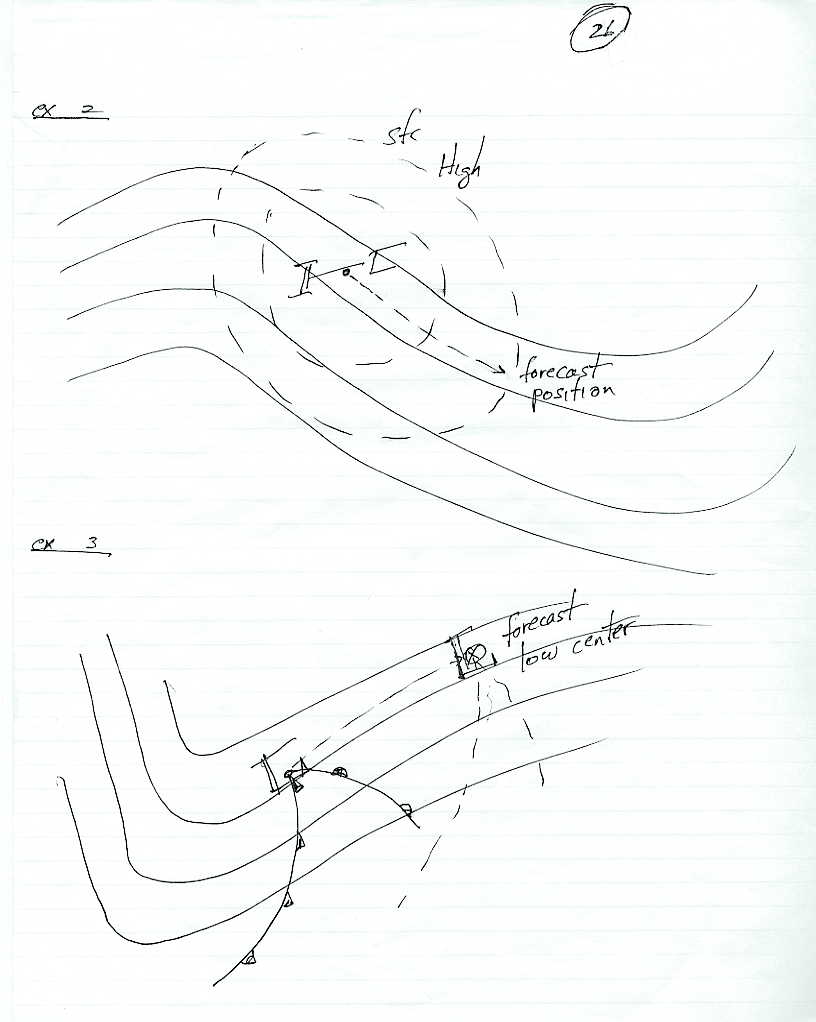 26
ex 2
sfc
High
H
forecast
position
ex 3
forecast
low center
L
L